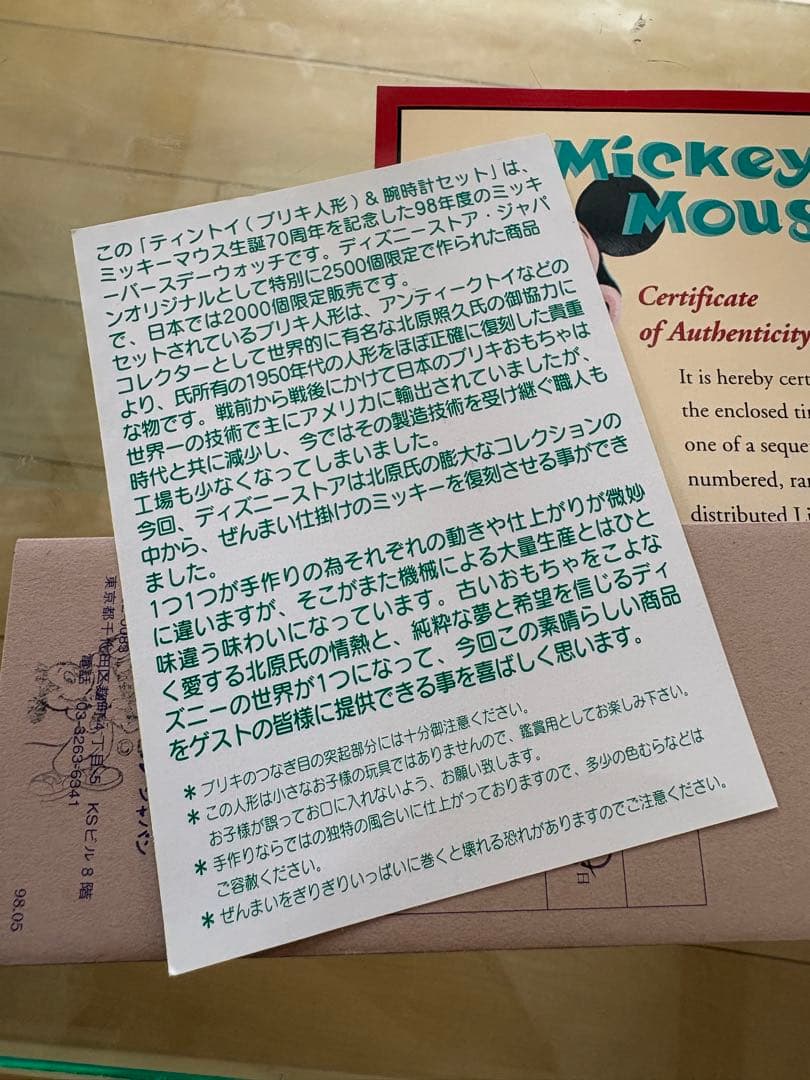 この「ティントイ(ブリキ人形)& 腕時計セット」は、
ミッキーマウス生誕70周年を記念した98年度のミッキ
ーバースデーウォッチです。ディズニーストア・ジャパ
ンオリジナルとして特別に2500個限定で作られた商品
で、日本では2000個限定販売です。
セットされているブリキ人形は、アンティークトイなどの
コレクターとして世界的に有名な北原照久氏の御協力に
より、氏所有の1950年代の人形をほぼ正確に復刻した貴重
な物です。戦前から戦後にかけて日本のブリキおもちゃは
世界一の技術で主にアメリカに輸出されていましたが、
時代と共に減少し、今ではその製造技術を受け継ぐ職人も
工場も少なくなってしまいました。
今回、ディズニーストアは北原氏の膨大なコレクションの
中から、ぜんまい仕掛けのミッキーを復刻させる事ができ
ました。
1つ1つが手作りの為それぞれの動きや仕上がりが微妙
に違いますが、そこがまた機械による大量生産とはひと
味違う味わいになっています。古いおもちゃをこよな
く愛する北原氏の情熱と、純粋な夢と希望を信じるディ
ズニーの世界が1つになって、今回この素晴らしい商品
をゲストの皆様に提供できる事を喜ばしく思います。
* ブリキのつなぎ目の突起部分には十分御注意ください。
* この人形は小さなお子様の玩具ではありませんので、鑑賞用としてお楽しみ下さい。
お子様が誤ってお口に入れないよう、お願い致します。
* 手作りならではの独特の風合いに仕上がっておりますので、多少の色むらなどは
ご容赦ください。
* ぜんまいをぎりぎりいっぱいに巻くと壊れる恐れがありますのでご注意ください。
Mickey
Mous
Certificate
of Authenticity
It is hereby cert
the enclosed tin
one of a seque
numbered, ran
distributed Li
東京都千代田区麹町4丁目5 KSビル8階
電話 03-3263-6341
ジャパン
98.05
日